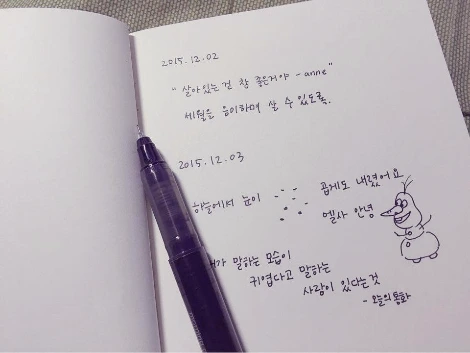 2015.12.02
"살아있는건 참 좋은거야 - anne"
세월을 음미하며 살 수 있도록.
2015.12.03
하늘에서 눈이 곱게도 내렸어요
엘사 안녕
말하는 모습이
귀엽다고 말하는
사람이 있다는것
- 오늘의 통화